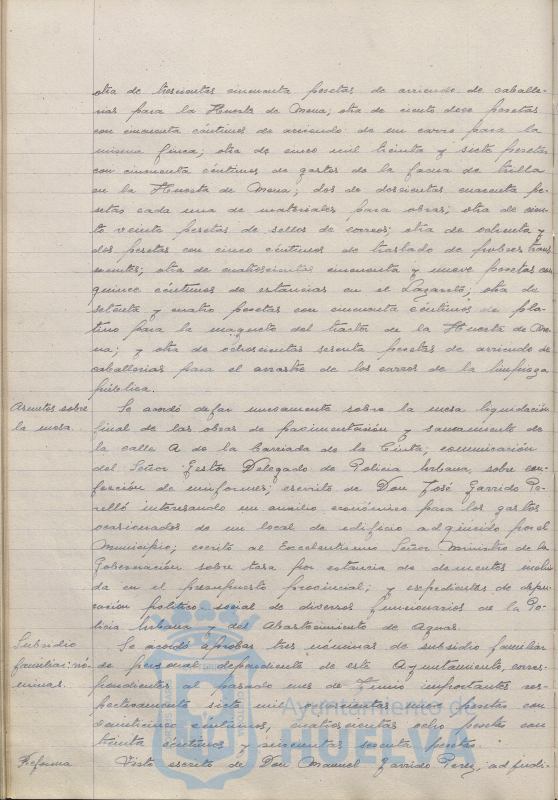 otra de trescientas cincuenta pesetas de arriendo de caballe-
rias para la Huerta de Mena; otra de ciento doce pesetas
con cincuenta céntimos de arriendo de un carro para la
misma finca; otra de cinco mil treinta y siete pesetas
con cincuenta céntimos de gastos de la faena de trilla
en la Huerta de Mena; dos de doscientas cincuenta pe-
setas cada una de materiales para obras; otra de cien-
to veinte pesetas de sellos de correos; otra de ochenta y
dos pesetas con cinco céntimos de traslado de pobres tran-
seuntes; otra de cuatrocientas cincuenta y nueve pesetas con
quince céntimos de estancias en el Lazareto; otra de
setenta y cuatro pesetas con cincuenta céntimos de pla-
tino para la magneto del tractor de la Huerta de Me-
na; y otra de ochocientas sesenta pesetas de arriendo de
caballerias para el arrastre de los carros de la limpieza
pública.
Asuntos sobre
la mesa.
Se acordó dejar nuevamente sobre la mesa liquidación
final de las obras de pavimentación y saneamiento de
la calle A de la Barriada de la Cinta; comunicación
del Señor Gestor Delegado de Policia Urbana, sobre con-
fección de uniformes; escrito de Don José Garrido Pe-
relló interesando un auxilio económico para los gastos
ocasionados de un local de edificio adquirido por el
Municipio; escrito al Excelentísimo Señor Ministro de la
Gobernación sobre tasa por estancia de dementes inclui-
da en el presupuesto provincial; y expedientes de depu-
ración politico social de diversos funcionarios de la Po-
licia Urbana y del Abastecimiento de Aguas.
Subsidio
familiar: nó-
minas.
Se acordó aprobar tres nóminas de subsidio familiar
de personal dependiente de este Ayuntamiento, corres-
pondientes al pasado mes de Junio importantes res-
pectivamente siete mil pesetas con
veinticinco céntimos, cuatrocientas ocho pesetas con
treinta céntimos y sesenta pesetas.
Reforma
Visto escrito de Don Manuel Garrido Perez, adjudi-
Ayuntamiento de
HUELVA